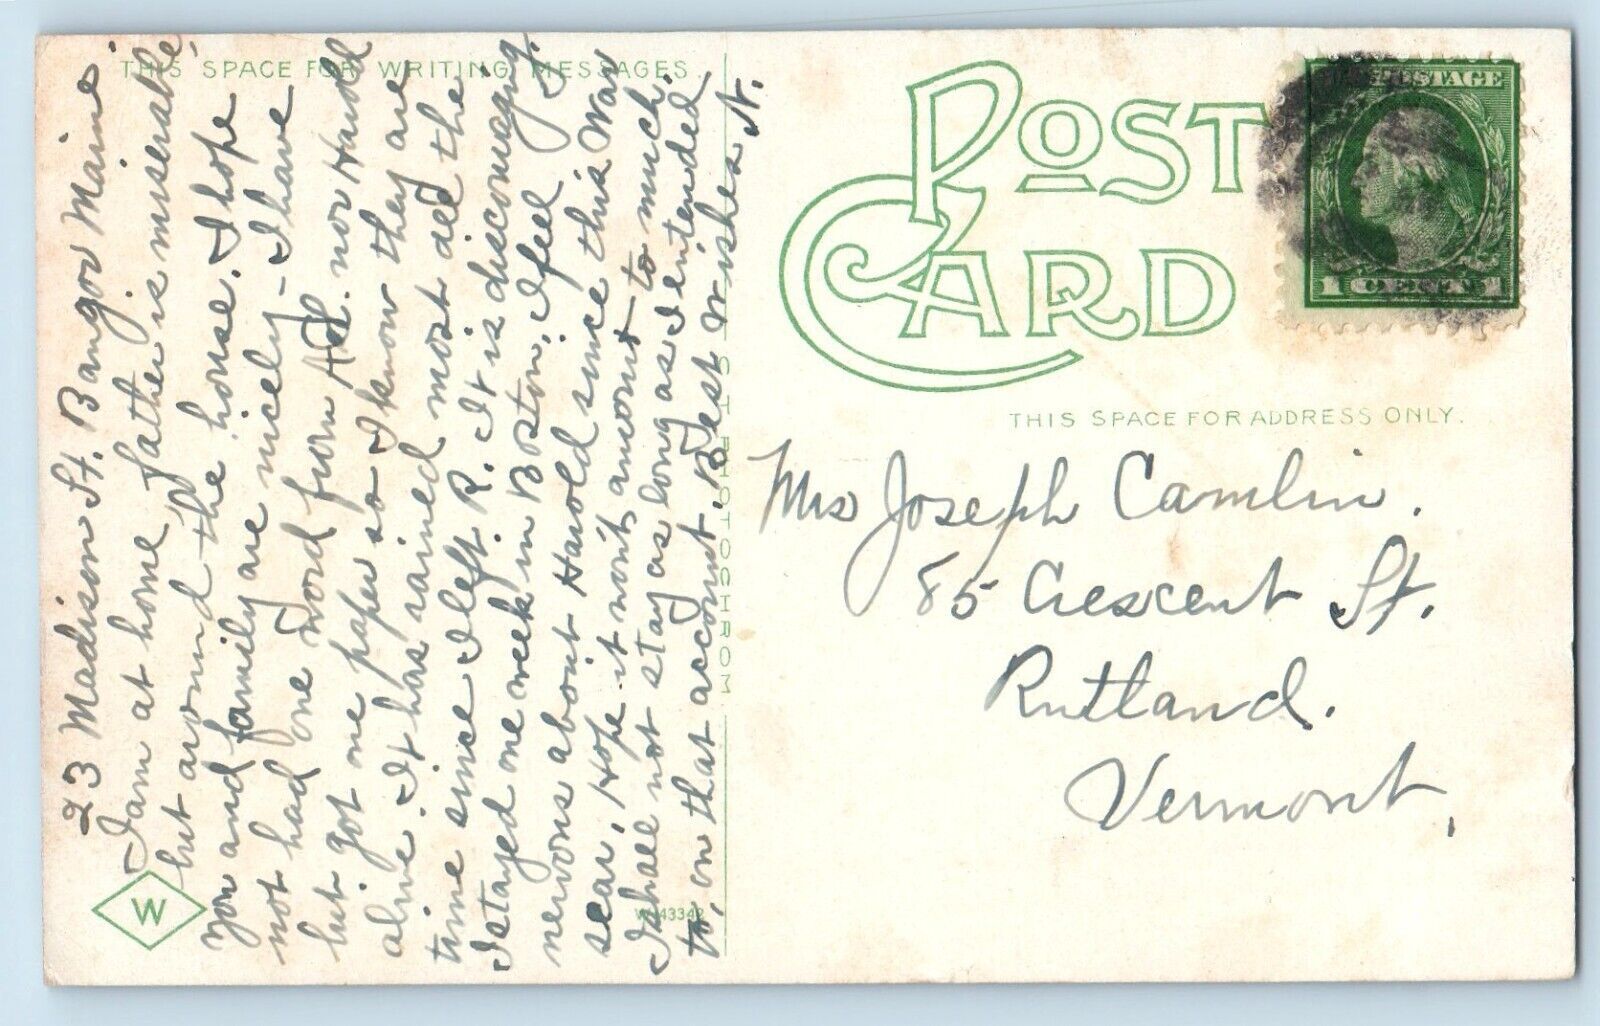 THIS SPACE FOR WRITING MESSAGES
23 Madison St. Bangor Maine.
I am at home, father is miserable,
but around the house. I hope
you and family are nicely - I have
not had one word from Ad. nor Harold
but got one paper so I know they are
alive. It has rained most all the
time since I left R. It is discouraging.
I stayed one week in Boston, I feel
nervous about Harold since this War
scar, Hope it won't amount to much,
I shall not stay as long as I entended
to, on that account. Best wishes N.
W
W-43342
PHOTOCHROM
POST CARD
U.S. POSTAGE
1 CENT 1
THIS SPACE FOR ADDRESS ONLY.
Mrs Joseph Camlin.
85 Crescent St.
Rutland.
Vermont,